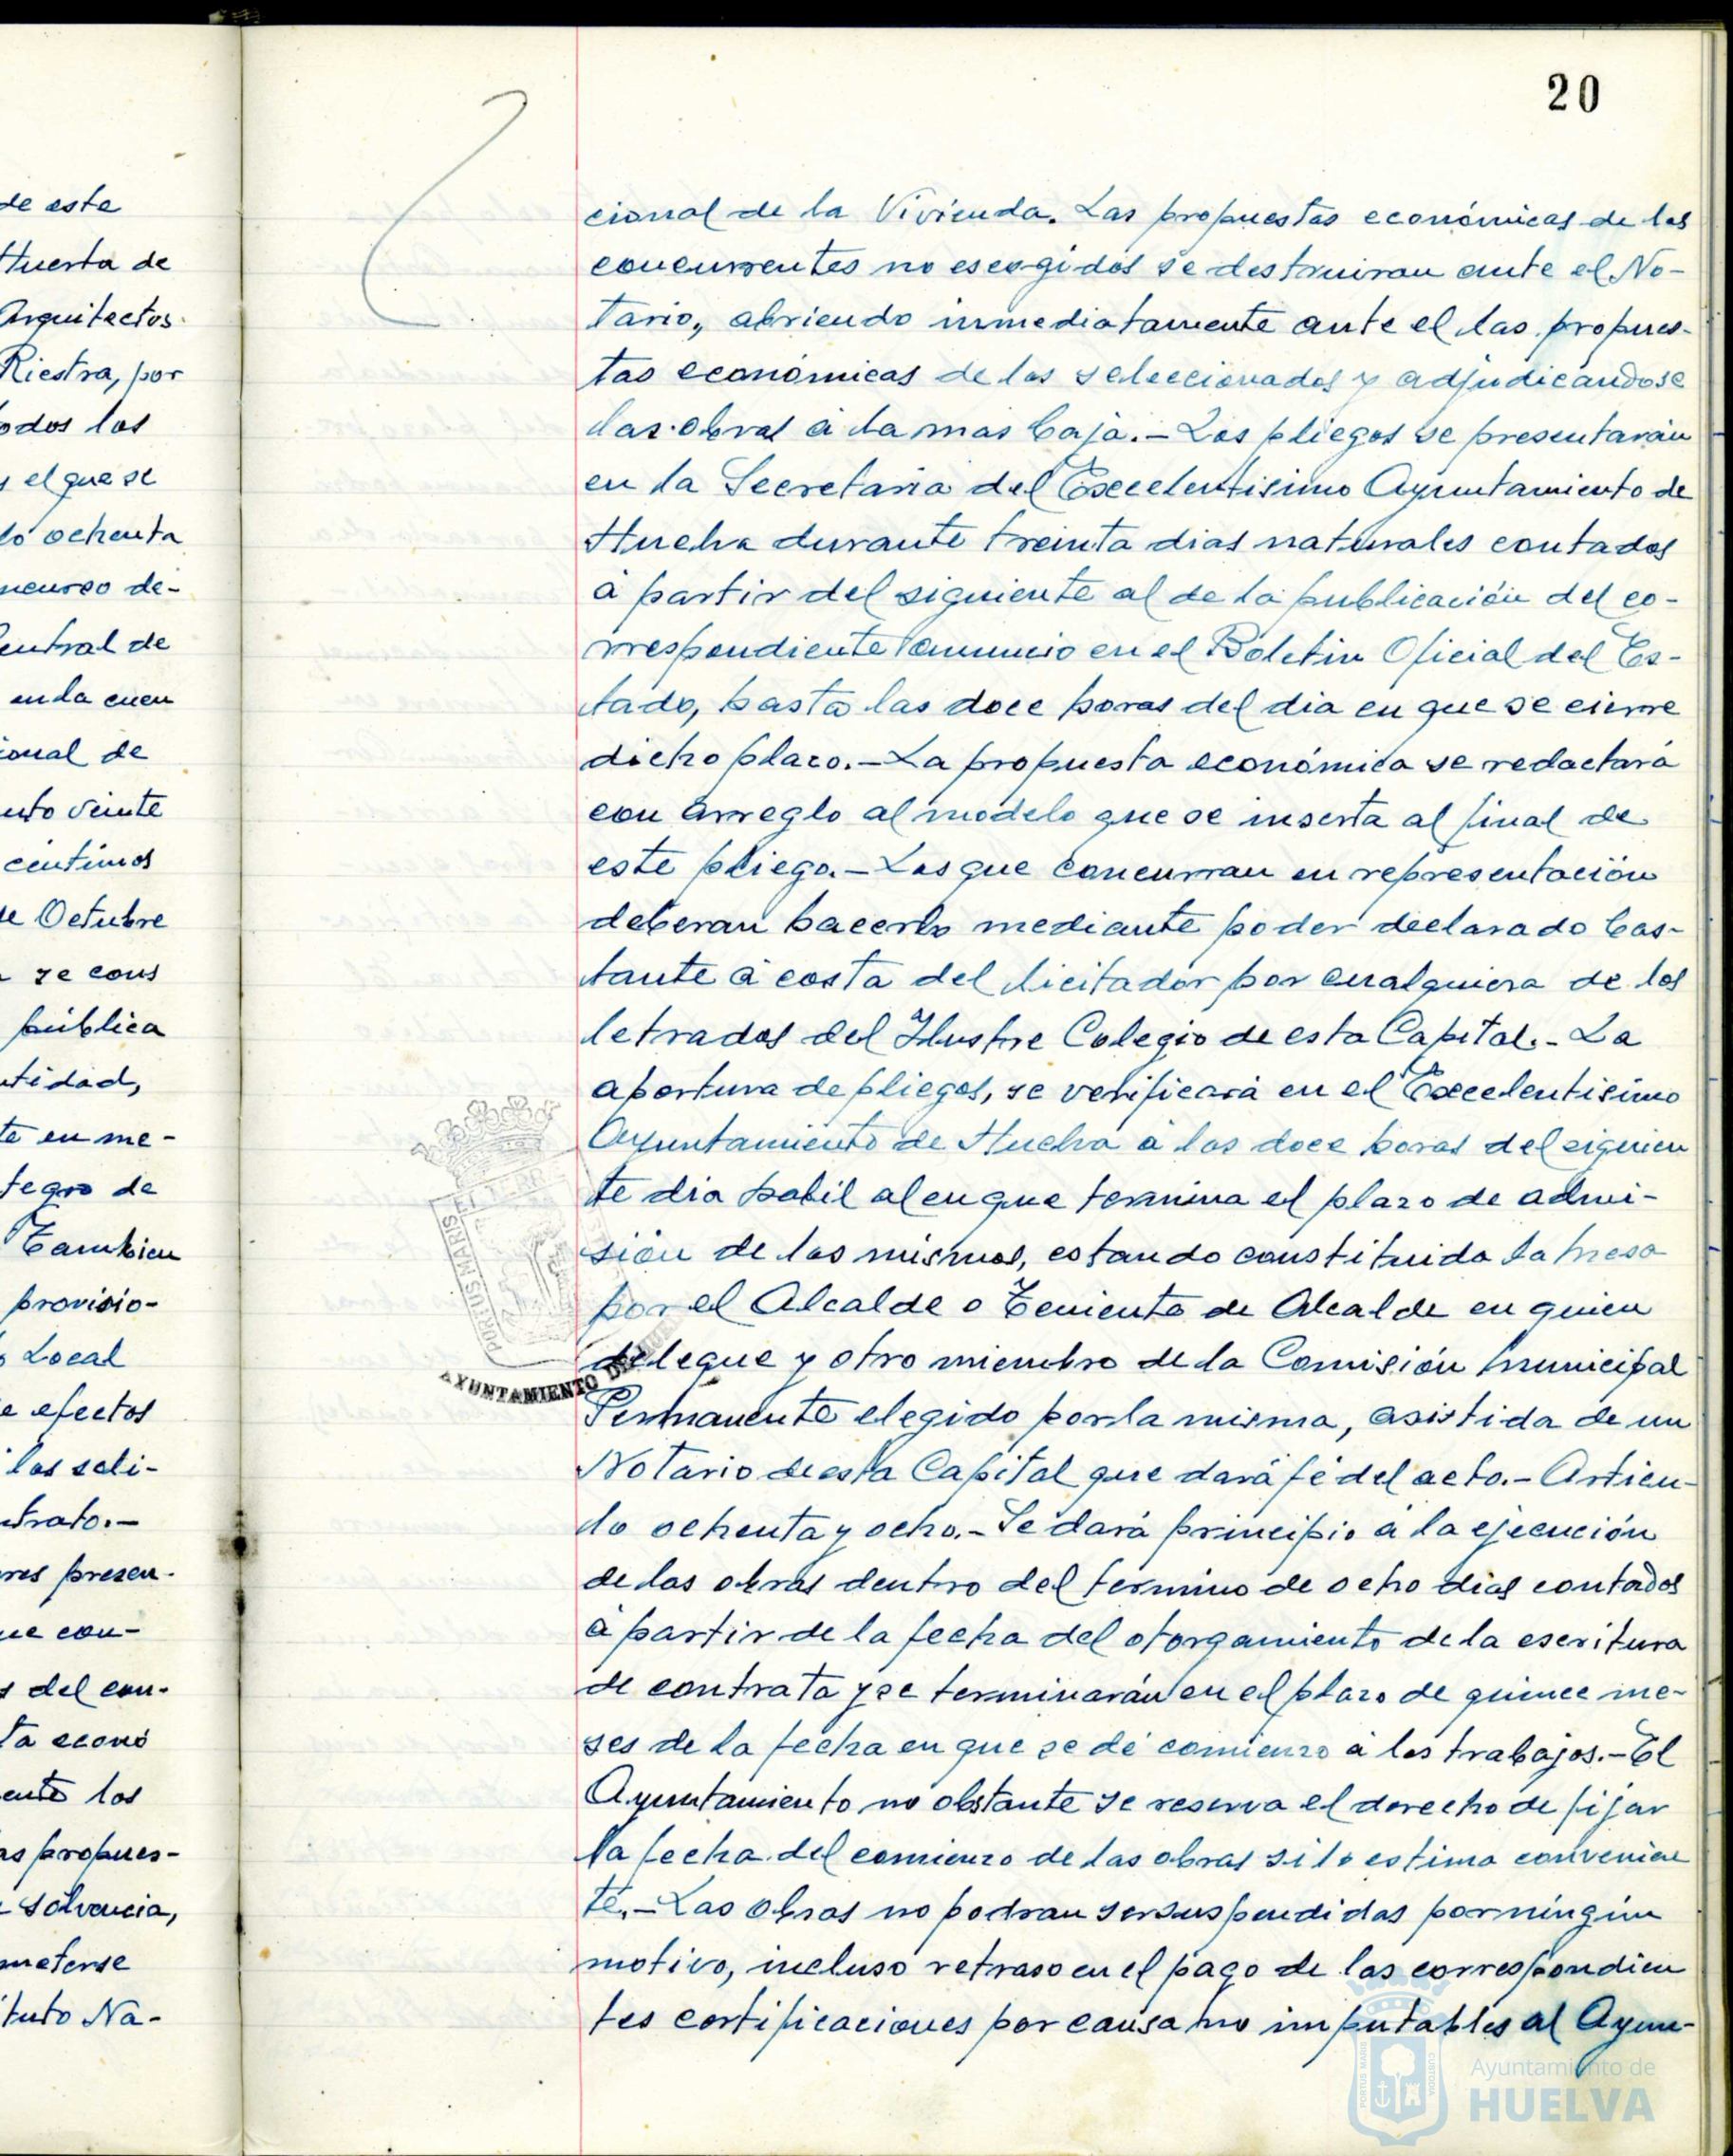 de este
Huerta de
Arquitectos
Riestra, por
odos los
y el que se
lo ochenta
ncurso de-
entral de
en la cuen
ional de
nto veinte
centimos
de Octubre
se cons
pública
ntidad,
te en me-
tegro de
Tambien
provisio-
Local
e efectos
los soli-
ntrato.-
res presen-
ue con-
s del con-
ta econó
ente los
as propues-
solvencia,
meterse
tuto Na-
20
cional de la Vivienda. Las propuestas económicas de los
concurrentes no escogidos se destruiran ante el No-
tario, abriendo inmediatamente ante el las propues-
tas económicas de los seleccionados y adjudicándose
las obras á la mas baja.- Los pliegos se presentarán
en la Secretaria del Excelentisimo Ayuntamiento de
Huelva durante treinta dias naturales contados
á partir del siguiente al de la publicación del co-
rrespondiente anuncio en el Boletin Oficial del Es-
tado, hasta las doce horas del dia en que se cierre
dicho plazo.- La propuesta económica se redactará
con arreglo al modelo que se inserta al final de
este pliego.- Los que concurran en representación
deberan hacerlo mediante poder declarado bas-
tante á costa del licitador por cualquiera de los
letrados del Ilustre Colegio de esta Capital.- La
apertura de pliegos, se verificará en el Excelentisimo
Ayuntamiento de Huelva á las doce horas del siguien
te dia habil al en que termina el plazo de admi-
sión de los mismos, estando constituida la mesa
por el Alcalde o Teniente de Alcalde en quien
delegue y otro miembro de la Comisión Municipal
Permanente elegido por la misma, asistida de un
Notario de esta Capital que dará fé del acto.- Articu-
lo ochenta y ocho.- Se dará principio á la ejecución
de las obras dentro del termino de ocho dias contados
á partir de la fecha del otorgamiento de la escritura
de contrata y se terminarán en el plazo de quince me-
ses de la fecha en que se dé comienzo á los trabajos.- El
Ayuntamiento no obstante se reserva el derecho de fijar
la fecha del comienzo de las obras si lo estima convenien
te.- Las obras no podran ser suspendidas por ningún
motivo, incluso retraso en el pago de las correspondien
tes certificaciones por causa no imputables al Ayun-
PORTUS MARIS
AYUNTAMIENTO DE HUELVA
PORTUS MARIS
CUSTODIA
Ayuntamiento de
HUELVA